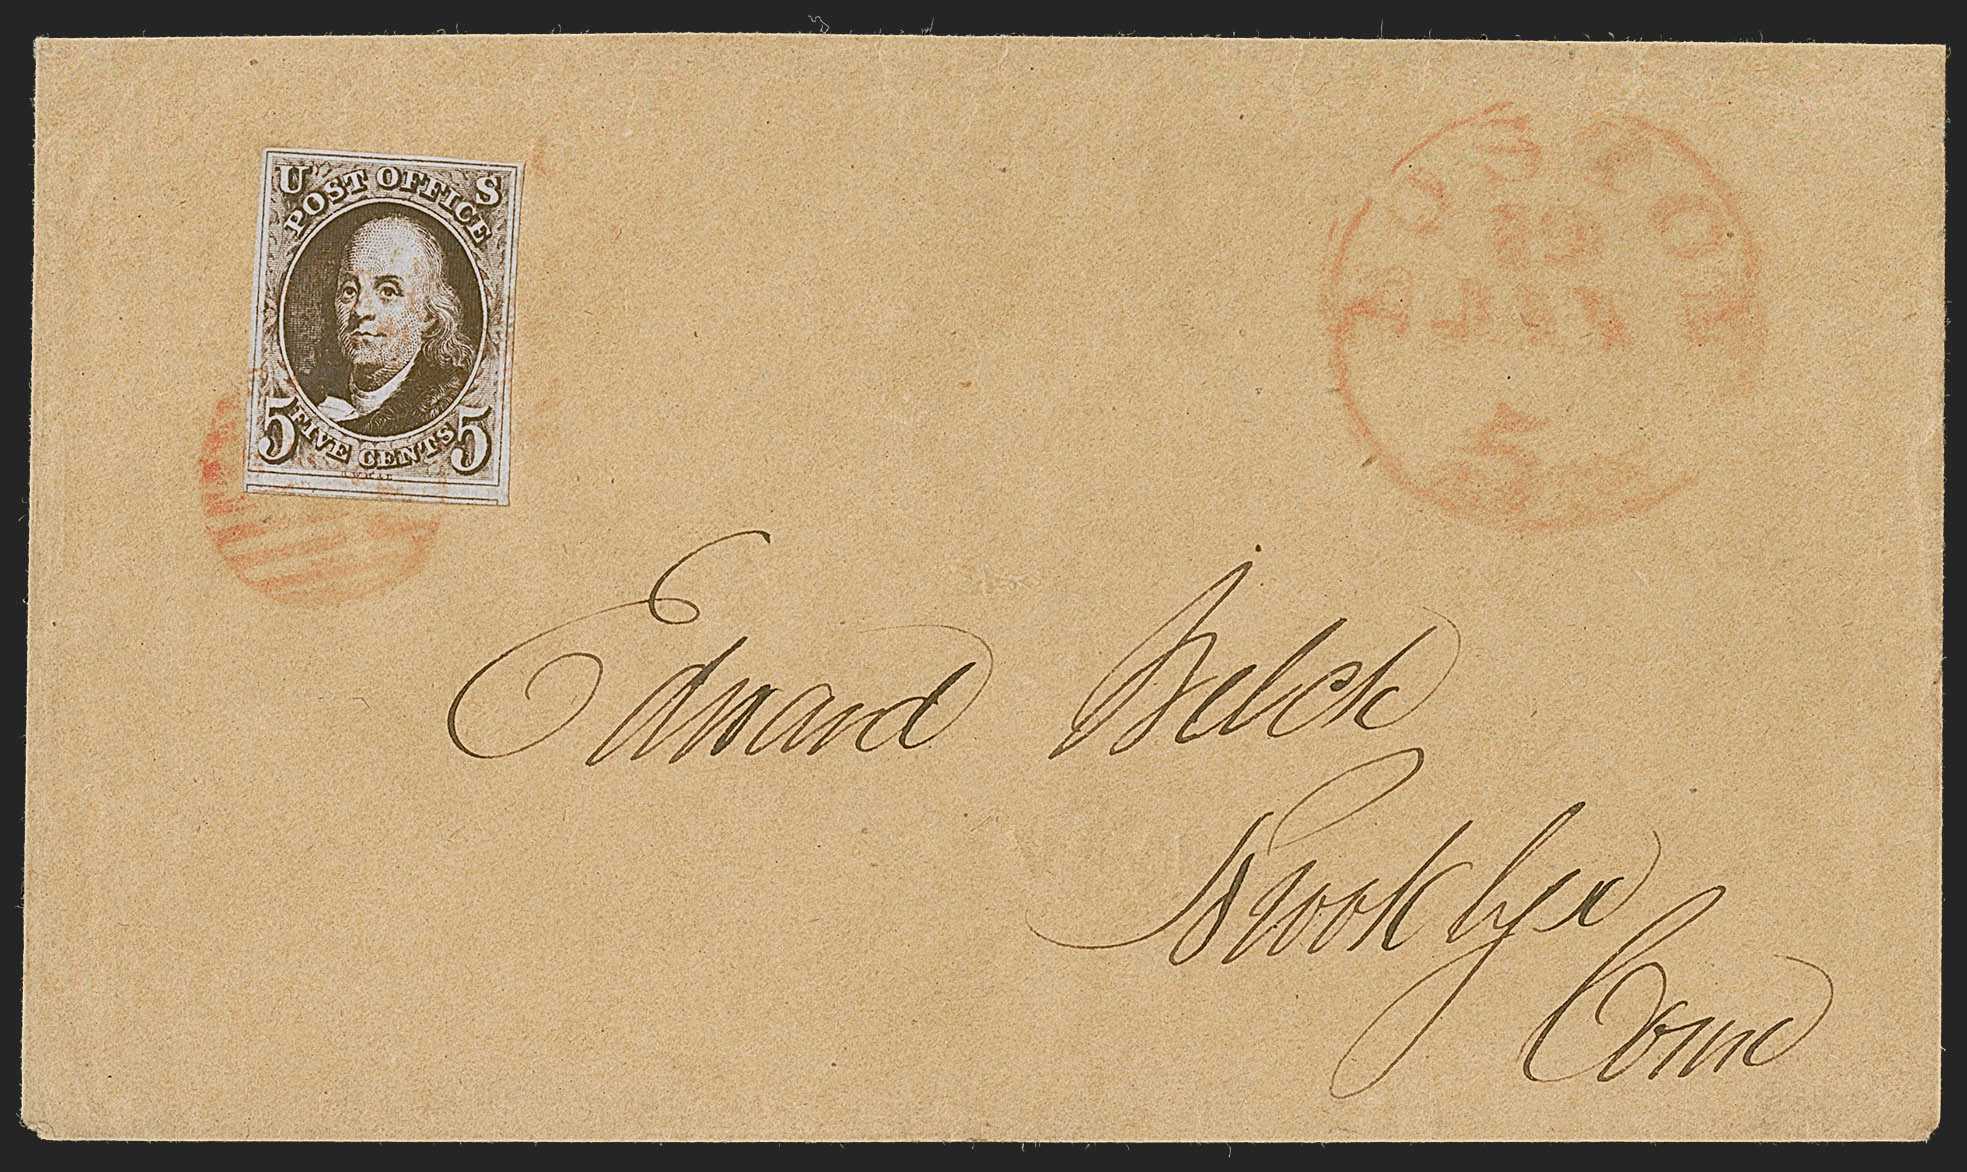 U S
POST OFFICE
5 FIVE CENTS 5
Edward Welch
Brooklyn
Conn